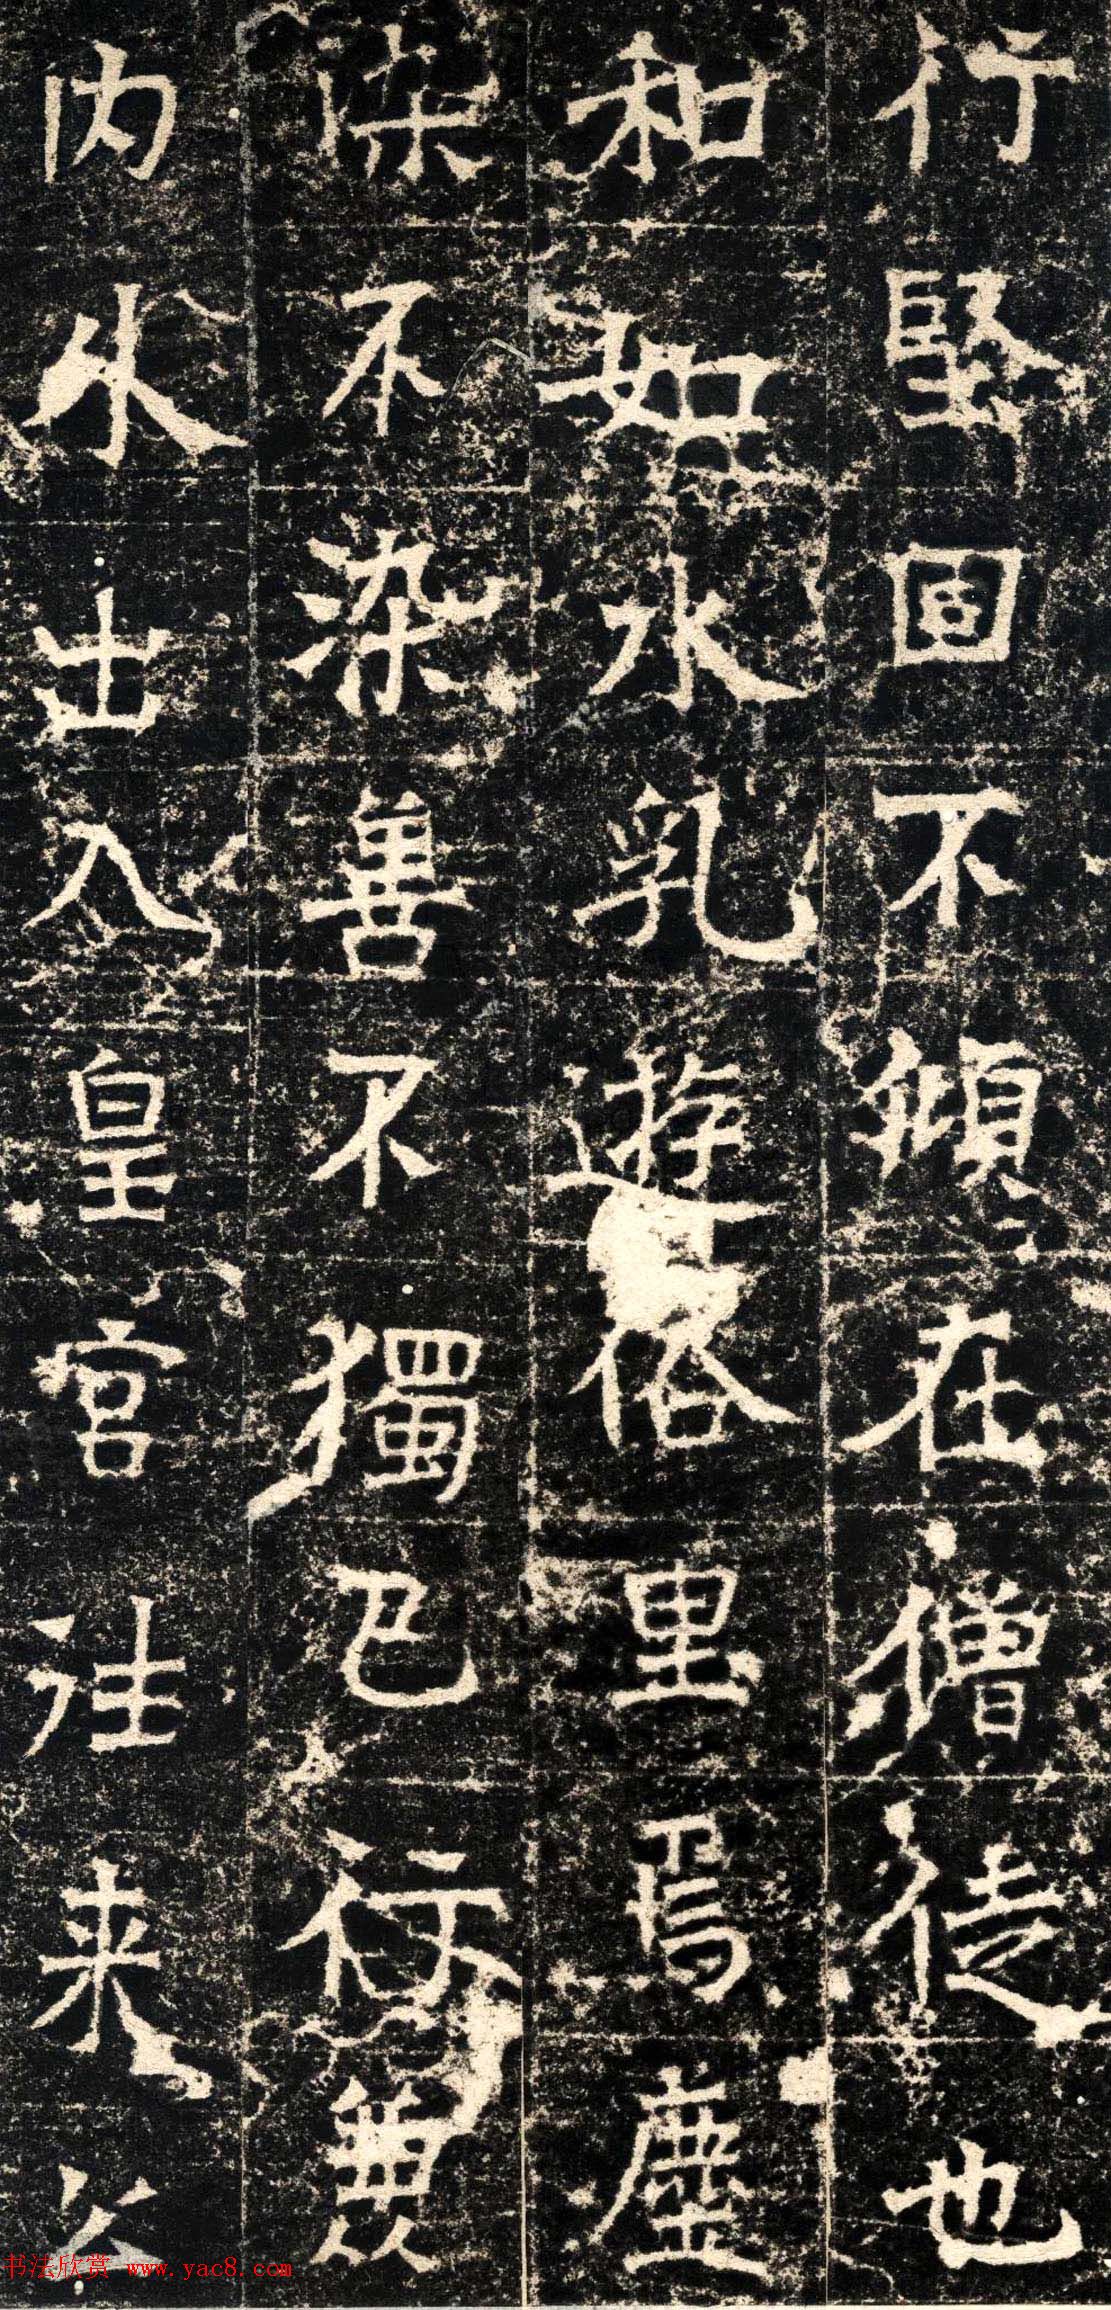 行堅固不傾在僧徒也
和如水乳遊俗里焉塵
染不染善不獨己行兼
内外出入皇宮往来公
书法欣赏 www.yac8.com